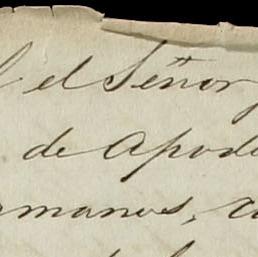 el Señor
de Apode
rmanos,